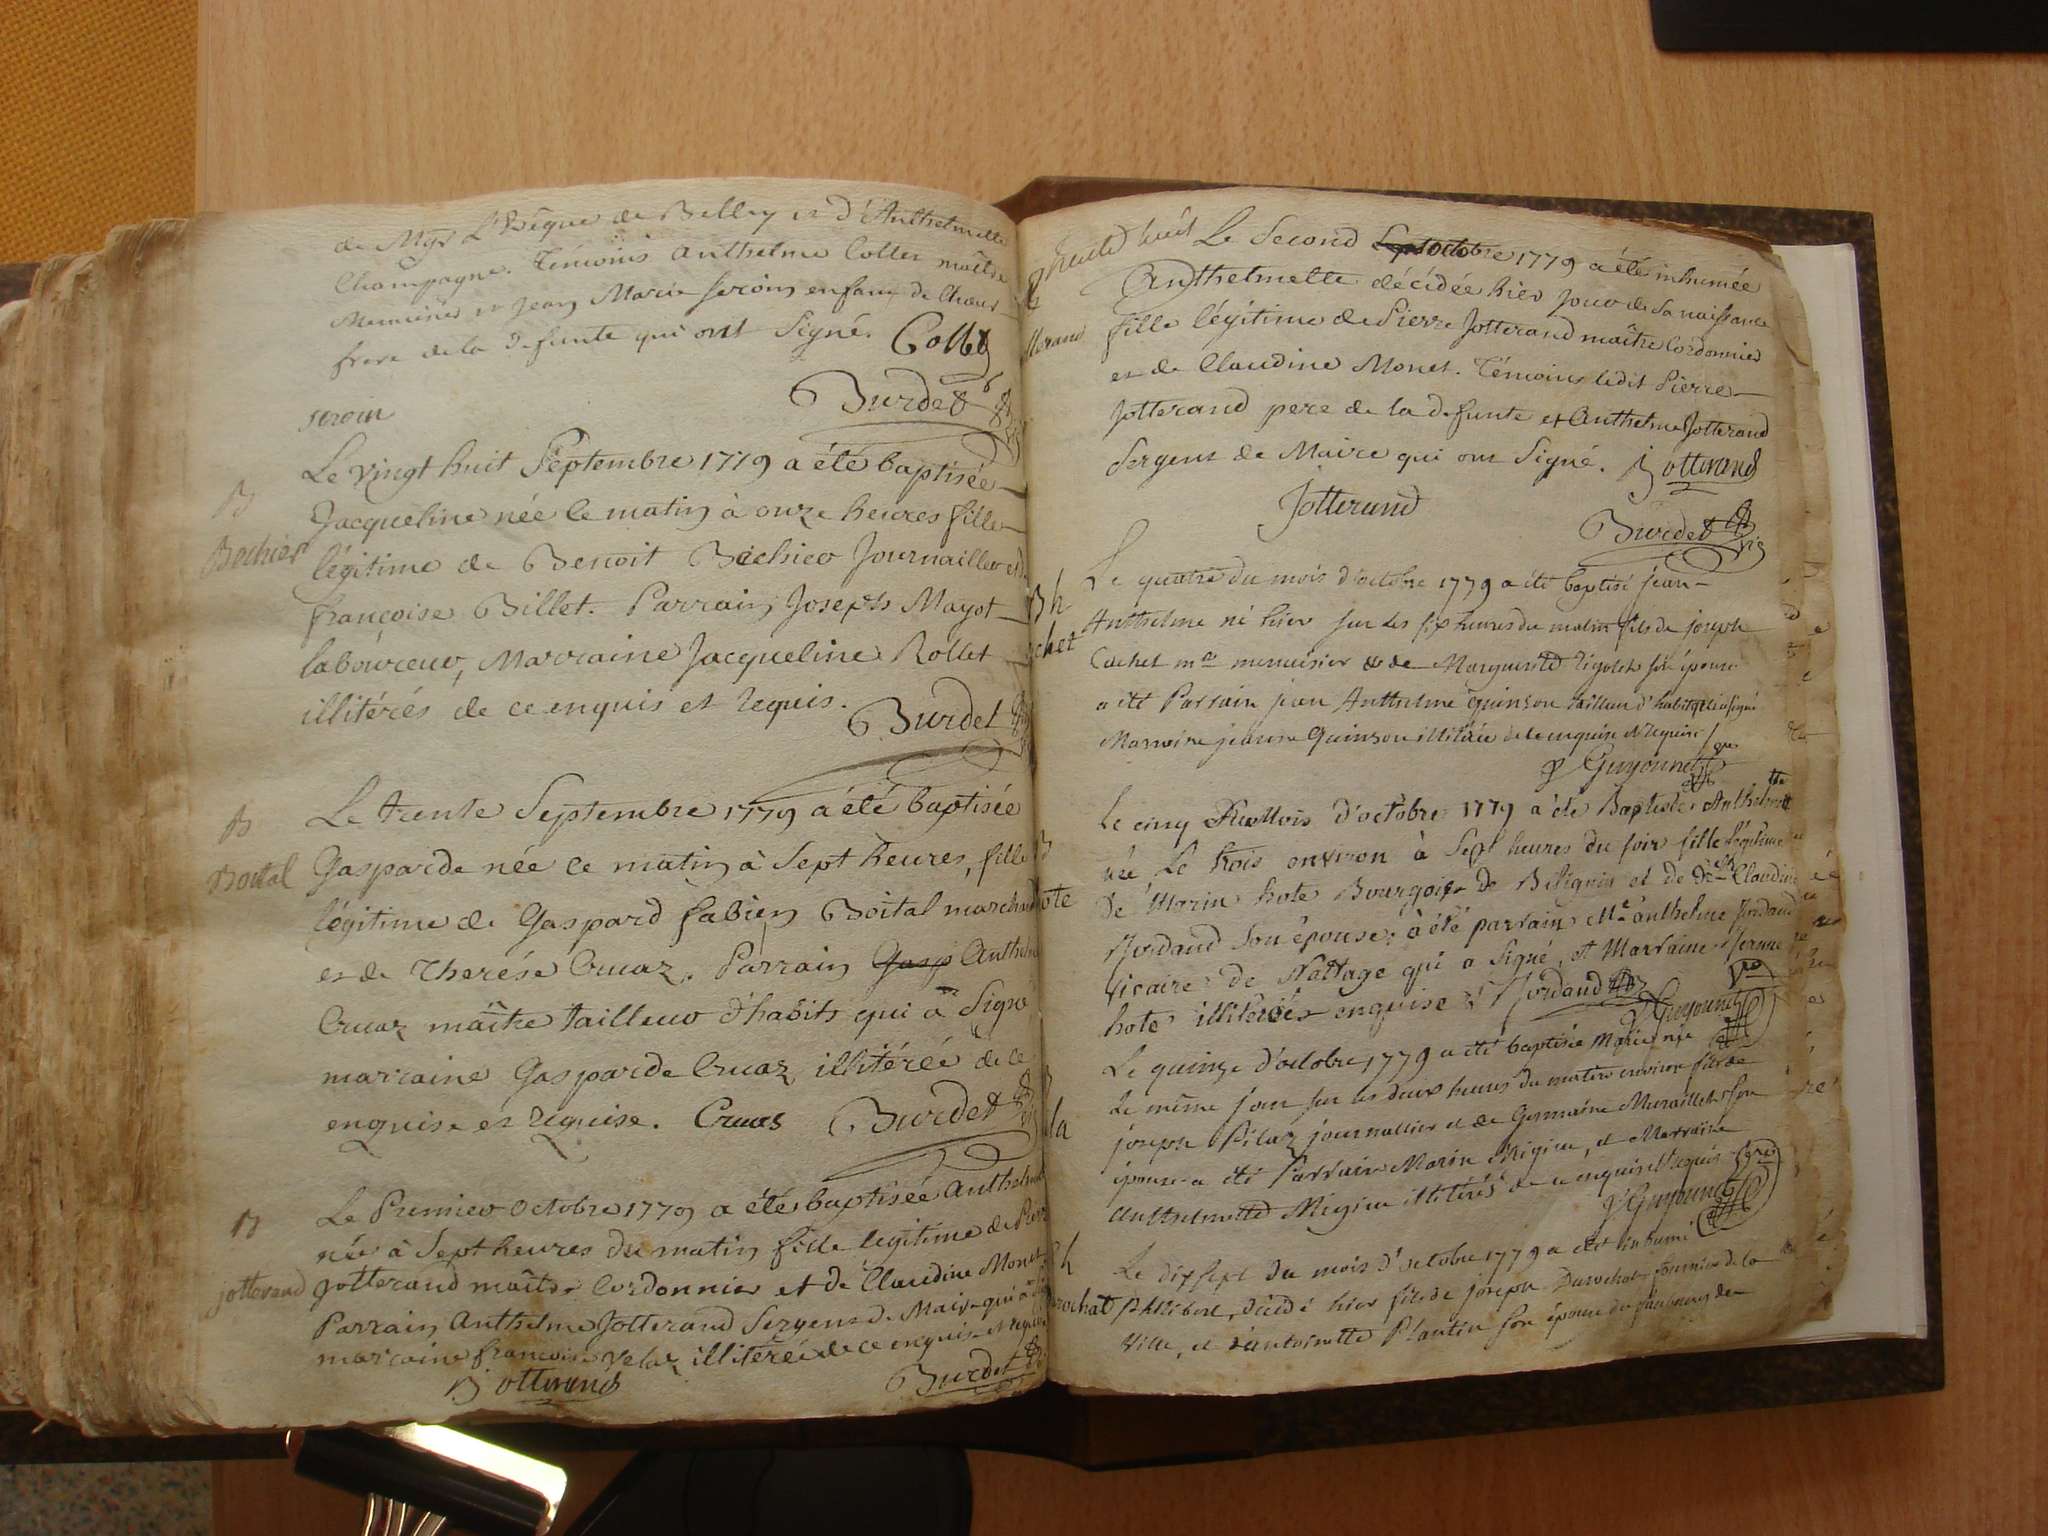 de Mgr L'Evêque de Belley et d'Anthelmette
Champagne. Témoins Anthelme Collet maître
Menuisier et Jean Marie seroin enfant de Chœur
frere de la defunte qui ont Signé. Collet
Burdet
seroin
B
Bechier
Le vingt huit Septembre 1779 a été baptisée
Jacqueline née le matin à onze heures fille
légitime de Benoit Bechier Journaillier et de
françoise Billet. Parrain Joseph Mayot
laboureur, Marraine Jacqueline Rollet
illitérés de ce enquis et requis.
Burdet
B
Boital
Le trente Septembre 1779 a été baptisée
Gasparde née ce matin à Sept heures, fille
légitime de Gaspard fabien Boital marchand
et de Therése Cruaz. Parrain Gasp Anthelme
Cruaz maître tailleur d'habits qui a Signé
marraine Gasparde Cruaz illitérée de ce
enquise et requise. Cruas Burdet
B
jotterand
Le Premier Octobre 1779 a été baptisée Anthelmette
née à Sept heures du matin fille legitime de Pierre
Jotterand maître Cordonnier et de Claudine Monet
Parrain Anthelme Jotterand Sergent de Maire qui a
marraine françoise velaz illitérée de ce enquise et requise
Jotterand Burdet
trente huit
Le Second Sept octobre 1779 a été inhumée
Anthelmette décédée hier jour de Sa naissance
fille légitime de Pierre Jotterand maître Cordonnier
et de Claudine Monet. Témoins ledit Pierre
Jotterand pere de la defunte et Anthelme Jotterand
Sergent de Maire qui ont Signé. Jotterand
Jotterand
Burdet
Le quatre du mois d'octobre 1779 a été baptisé jean
Anthelme né hier sur les six heures du matin fils de joseph
Cachet me menuisier et de Marguerite Rigolet son épouse
a été Parrain jean Anthelme Guinson tailleur d'habits qui a signé
Marraine jeanne Guinson illitérée de ce enquise et requise
Guyonnet
Le cinq du Mois d'octobre 1779 a été Baptisée Anthelmette
née Le trois environ à Sept heures du soir fille légitime
De Marin hote Bourgois de Bilignin et de Dlle Claudine
Jordand Son épouse; a été parrain Me anthelme Jordand
vicaire de Nattage qui a Signé, et Marraine Jeanne
hote illitérée enquise Jordand
Guyonnet
Le quinze d'octobre 1779 a été baptisée Marie née
Le même jour sur les deux heures du matin environ fille de
joseph Pilaz journallier et de Germaine Muraillet son
épouse a été Parrain Marin Migieu, et Marraine
Anthelmette Migieu illitérés de ce enquis et requis
Guyonnet
Le dix sept du mois d'octobre 1779 a été inhumé
Philibert, décidé hier fils de joseph Durochat fournier de la
ville, et d'antoinette Plantin son épouse du faubourg de